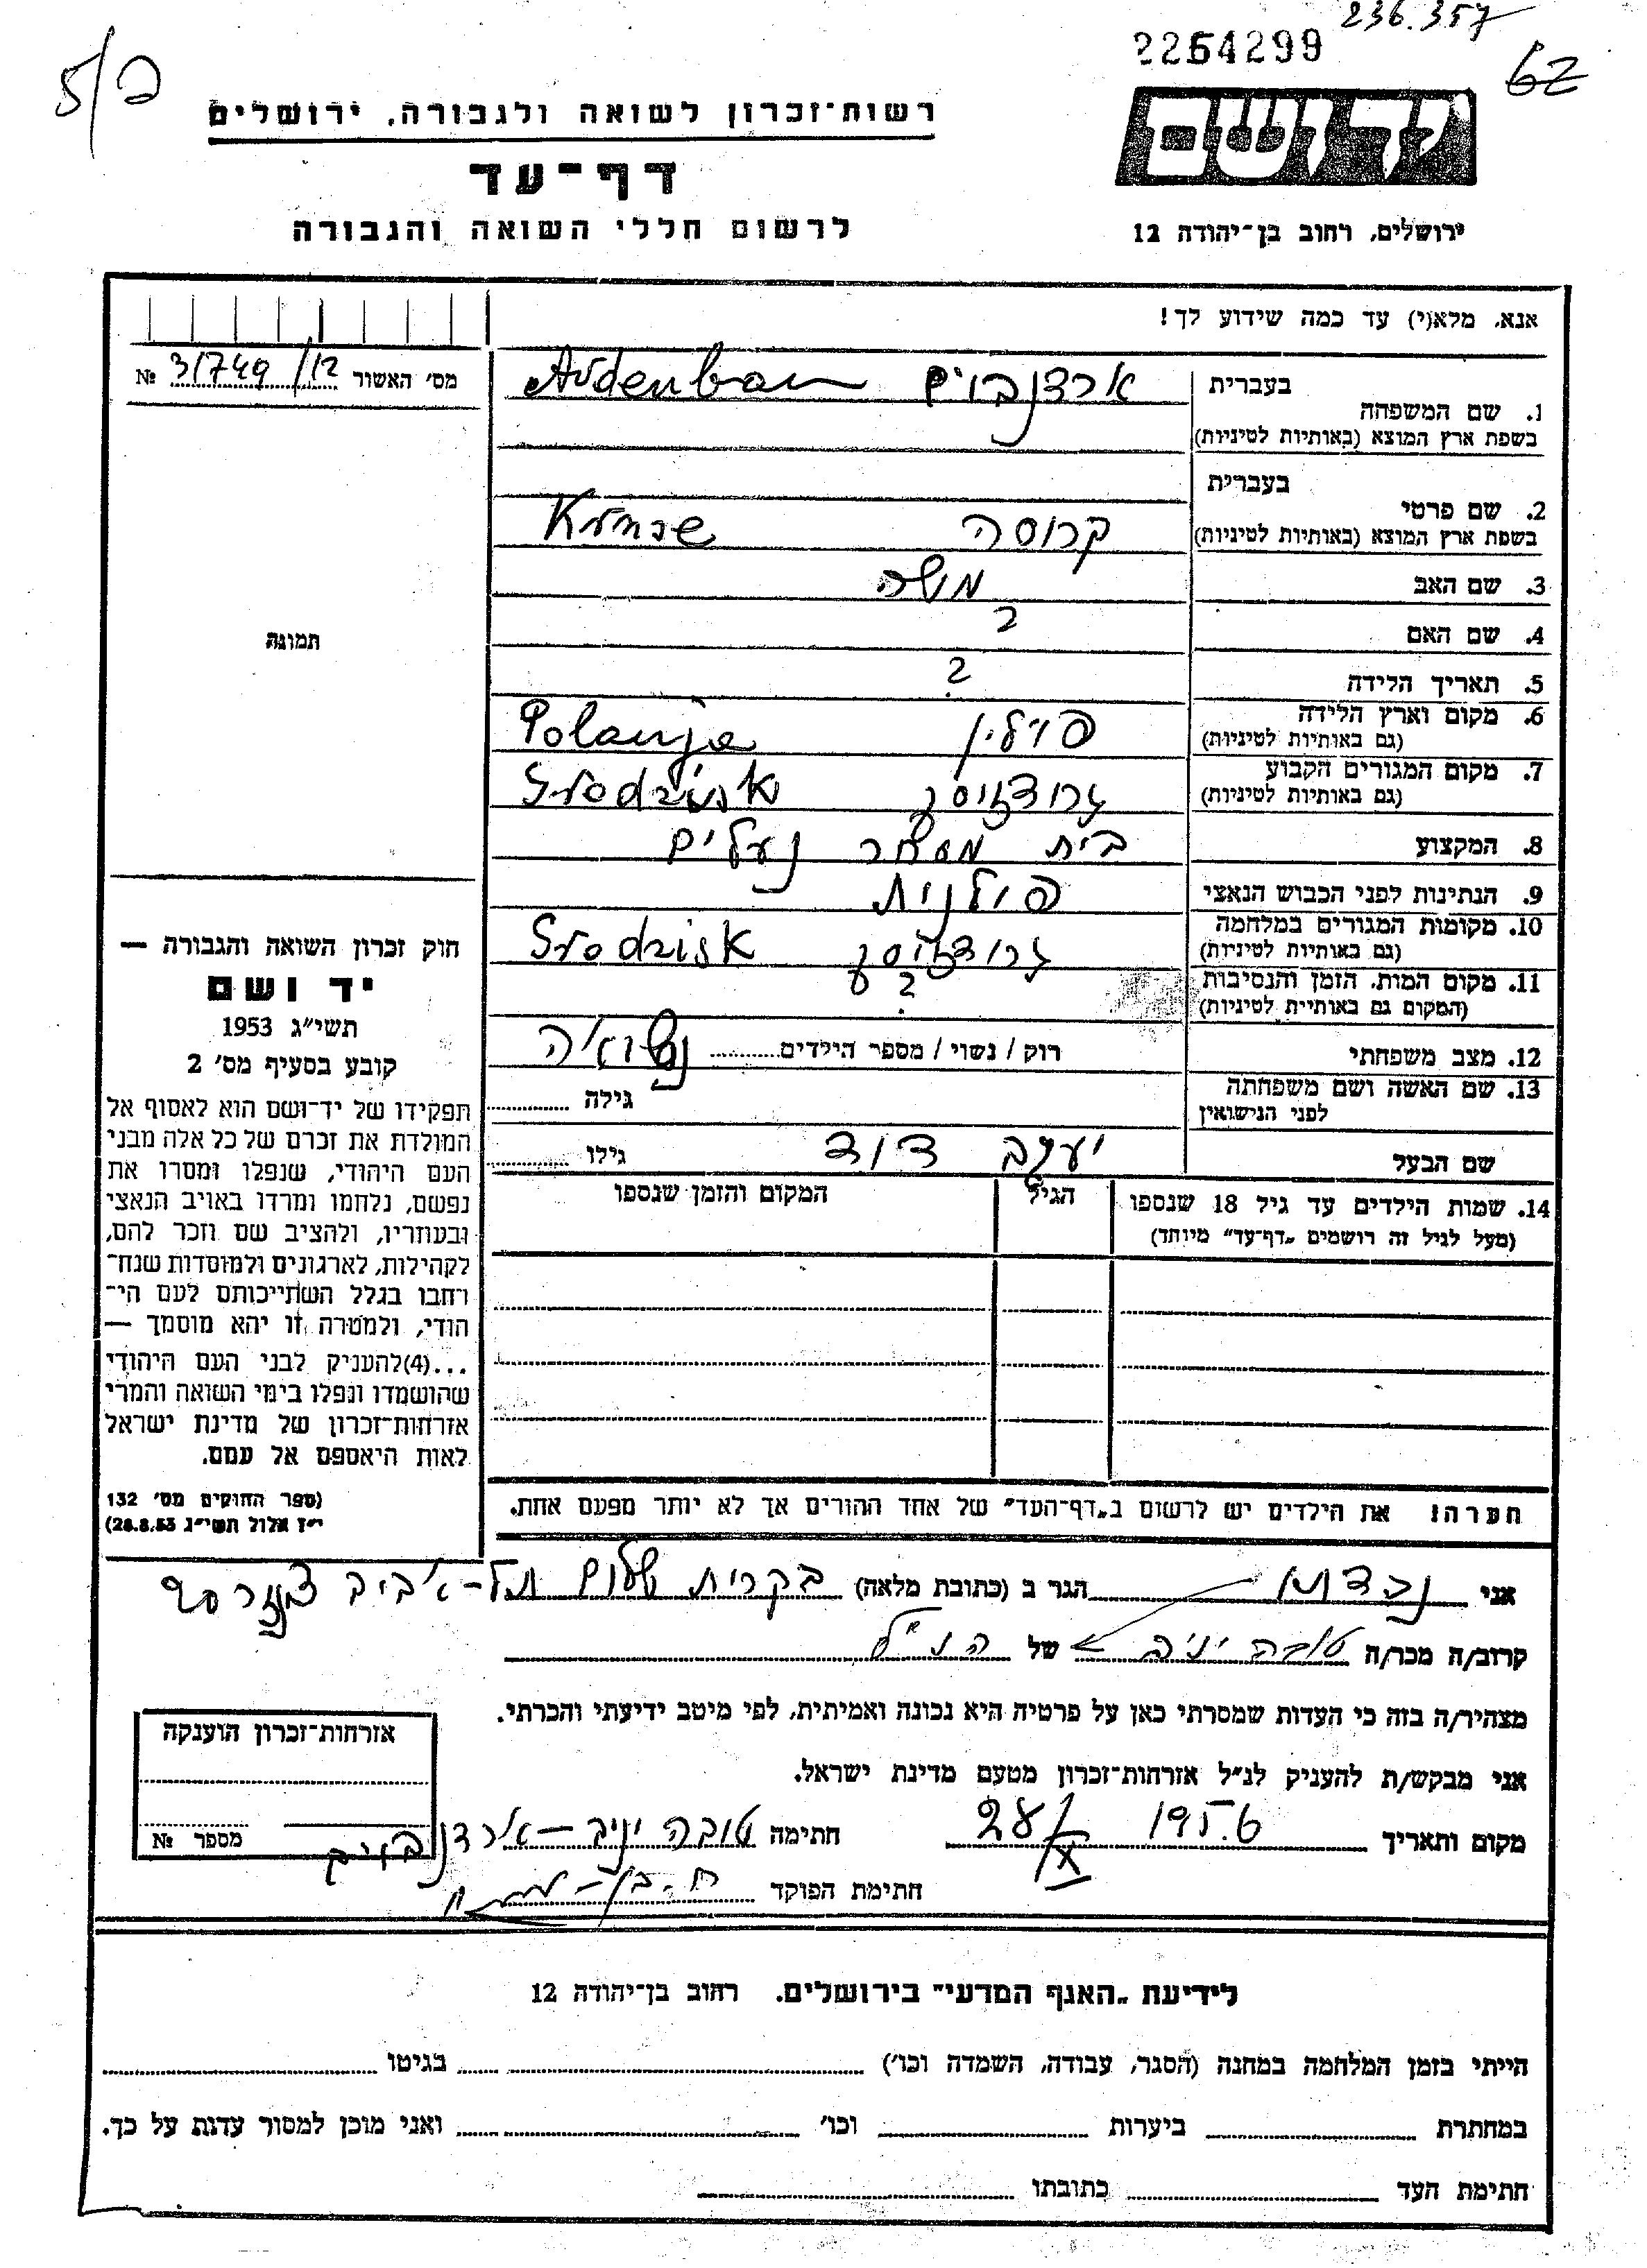 236.357
2264299
62
5/פ
רשות־זכרון לשואה ולגבורה, ירושלים
דף־עד
לרשום חללי השואה והגבורה
יד ושם
ירושלים, רחוב בן־יהודה 12
אנא, מלא(י) עד כמה שידוע לך!
מס׳ האשור 31749/12 №
תמונה
בעברית
1. שם המשפחה ארדנבוים Ardenbaum
בשפת ארץ המוצא (באותיות לטיניות)
בעברית
2. שם פרטי
בשפת ארץ המוצא (באותיות לטיניות) קרוסה
3. שם האב משה
4. שם האם ?
5. תאריך הלידה ?
6. מקום וארץ הלידה פולין Polanja
(גם באותיות לטיניות)
7. מקום המגורים הקבוע גרודזיסק Grodzisk
(גם באותיות לטיניות)
8. המקצוע בית מסחר נעלים
9. הנתינות לפני הכבוש הנאצי פולנית
10. מקומות המגורים במלחמה גרודזיסק Grodzisk
(גם באותיות לטיניות)
11. מקום המות, הזמן והנסיבות ?
(המקום גם באותיית לטיניות)
12. מצב משפחתי רוק / נשוי / מספר הילדים נשואה
13. שם האשה ושם משפחתה גילה
לפני הנישואין
שם הבעל יעקב דוד גילו
14. שמות הילדים עד גיל 18 שנספו הגיל המקום והזמן שנספו
(מעל לגיל זה רושמים „דף־עד״ מיוחד)
הערה! את הילדים יש לרשום ב„דף־העד״ של אחד ההורים אך לא יותר מפעם אחת.
חוק זכרון השואה והגבורה —
יד ושם
תשי״ג 1953
קובע בסעיף מס׳ 2
תפקידו של יד־ושם הוא לאסוף אל
המולדת את זכרם של כל אלה מבני
העם היהודי, שנפלו ומסרו את
נפשם, נלחמו ומרדו באויב הנאצי
ובעוזריו, ולהציב שם וזכר להם,
לקהילות, לארגונים ולמוסדות שנח־
רחבו בגלל השתייכותם לעם הי־
הודי, ולמטרה זו יהא מוסמך —
...(4)להעניק לבני העם היהודי
שהושמדו ונפלו בימי השואה והמרי
אזרחות־זכרון של מדינת ישראל
לאות היאספם אל עמם.
(ספר החוקים מס׳ 132
י״ז אלול תשי״ג 28.8.53)
אני נכדתו הגר ב (כתובת מלאה) בקרית שלום תל-אביב
קרוב/ה מכר/ה טובה יניב של הנ״ל
מצהיר/ה בזה כי העדות שמסרתי כאן על פרטיה היא נכונה ואמיתית, לפי מיטב ידיעתי והכרתי.
אני מבקש/ת להעניק לנ״ל אזרחות־זכרון מטעם מדינת ישראל.
מקום ותאריך 1956 28/X חתימה טובה יניב - ארדנבוים
חתימת הפוקד
אזרחות־זכרון הוענקה
מספר №
לידיעת „האגף המדעי״ בירושלים. רחוב בן־יהודה 12
הייתי בזמן המלחמה במחנה (הסגר, עבודה, השמדה וכו׳) בגיטו
במחתרת ביערות וכו׳ ואני מוכן למסור עדות על כך.
חתימת העד כתובתו